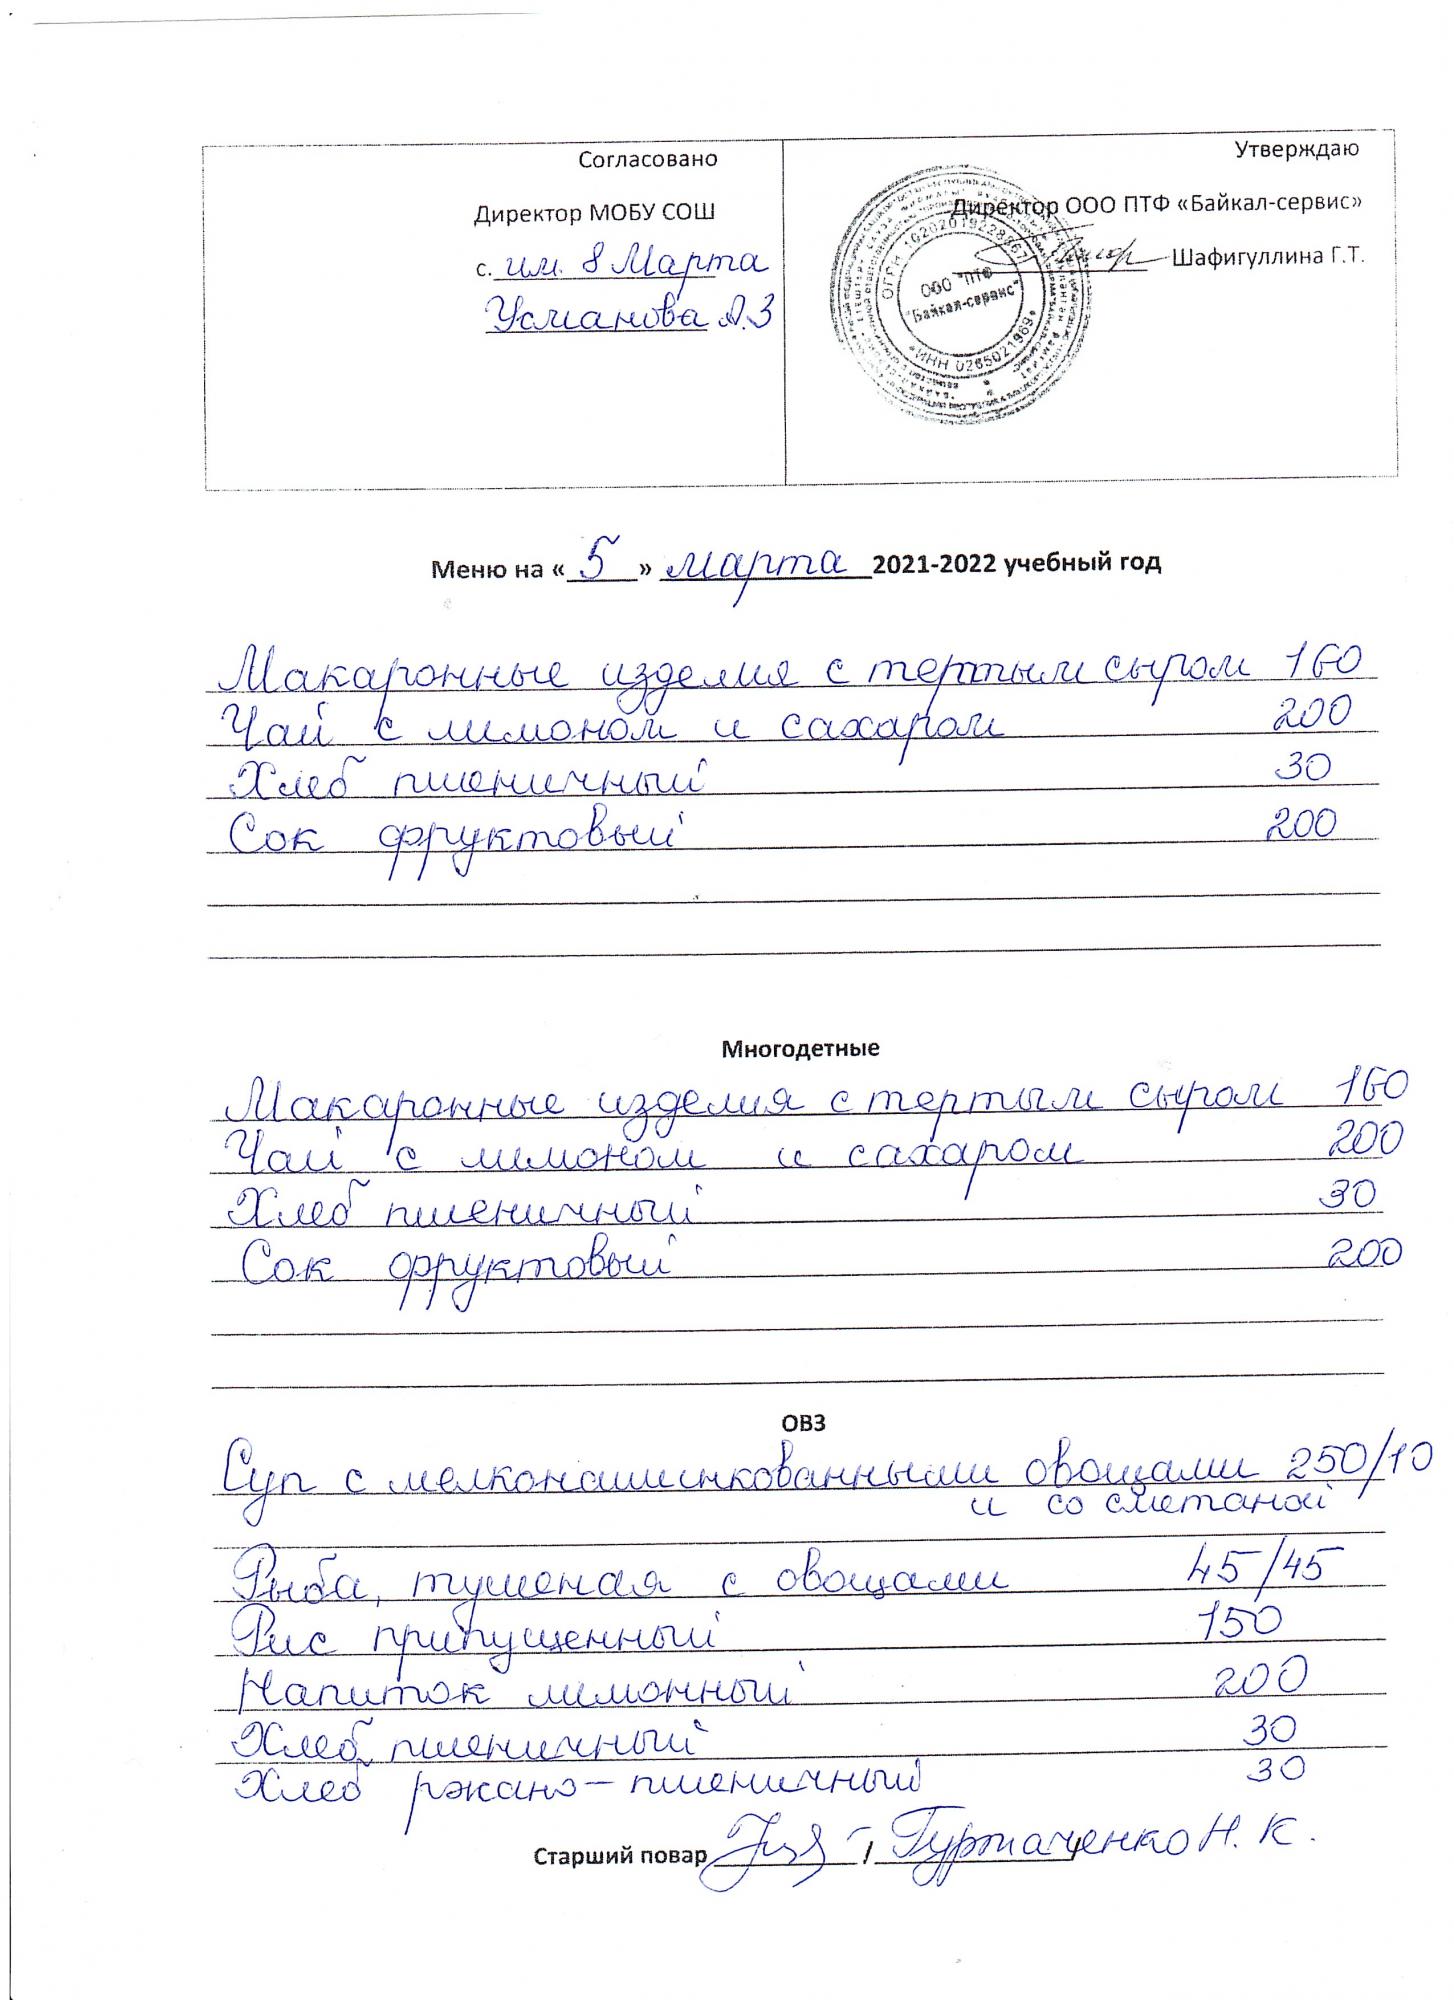 Согласовано
Директор МОБУ СОШ
с. им. 8 Марта
Усманова А.З
Утверждаю
Директор ООО ПТФ «Байкал-сервис»
Шафигуллина Г.Т.
ОГРН 1020201922836
ООО "ПТФ
"Байкал-сервис"
ИНН 0265021969
Меню на « 5 » марта 2021-2022 учебный год
Макаронные изделия с тертым сыром 160
Чай с лимоном и сахаром 200
Хлеб пшеничный 30
Сок фруктовый 200
Многодетные
Макаронные изделия с тертым сыром 160
Чай с лимоном и сахаром 200
Хлеб пшеничный 30
Сок фруктовый 200
ОВЗ
Суп с мелконашинкованными овощами 250/10
и со сметаной
Рыба, тушеная с овощами 45/45
Рис припущенный 150
Напиток лимонный 200
Хлеб пшеничный 30
Хлеб ржано-пшеничный 30
Старший повар / Гуртаченко Н. К.